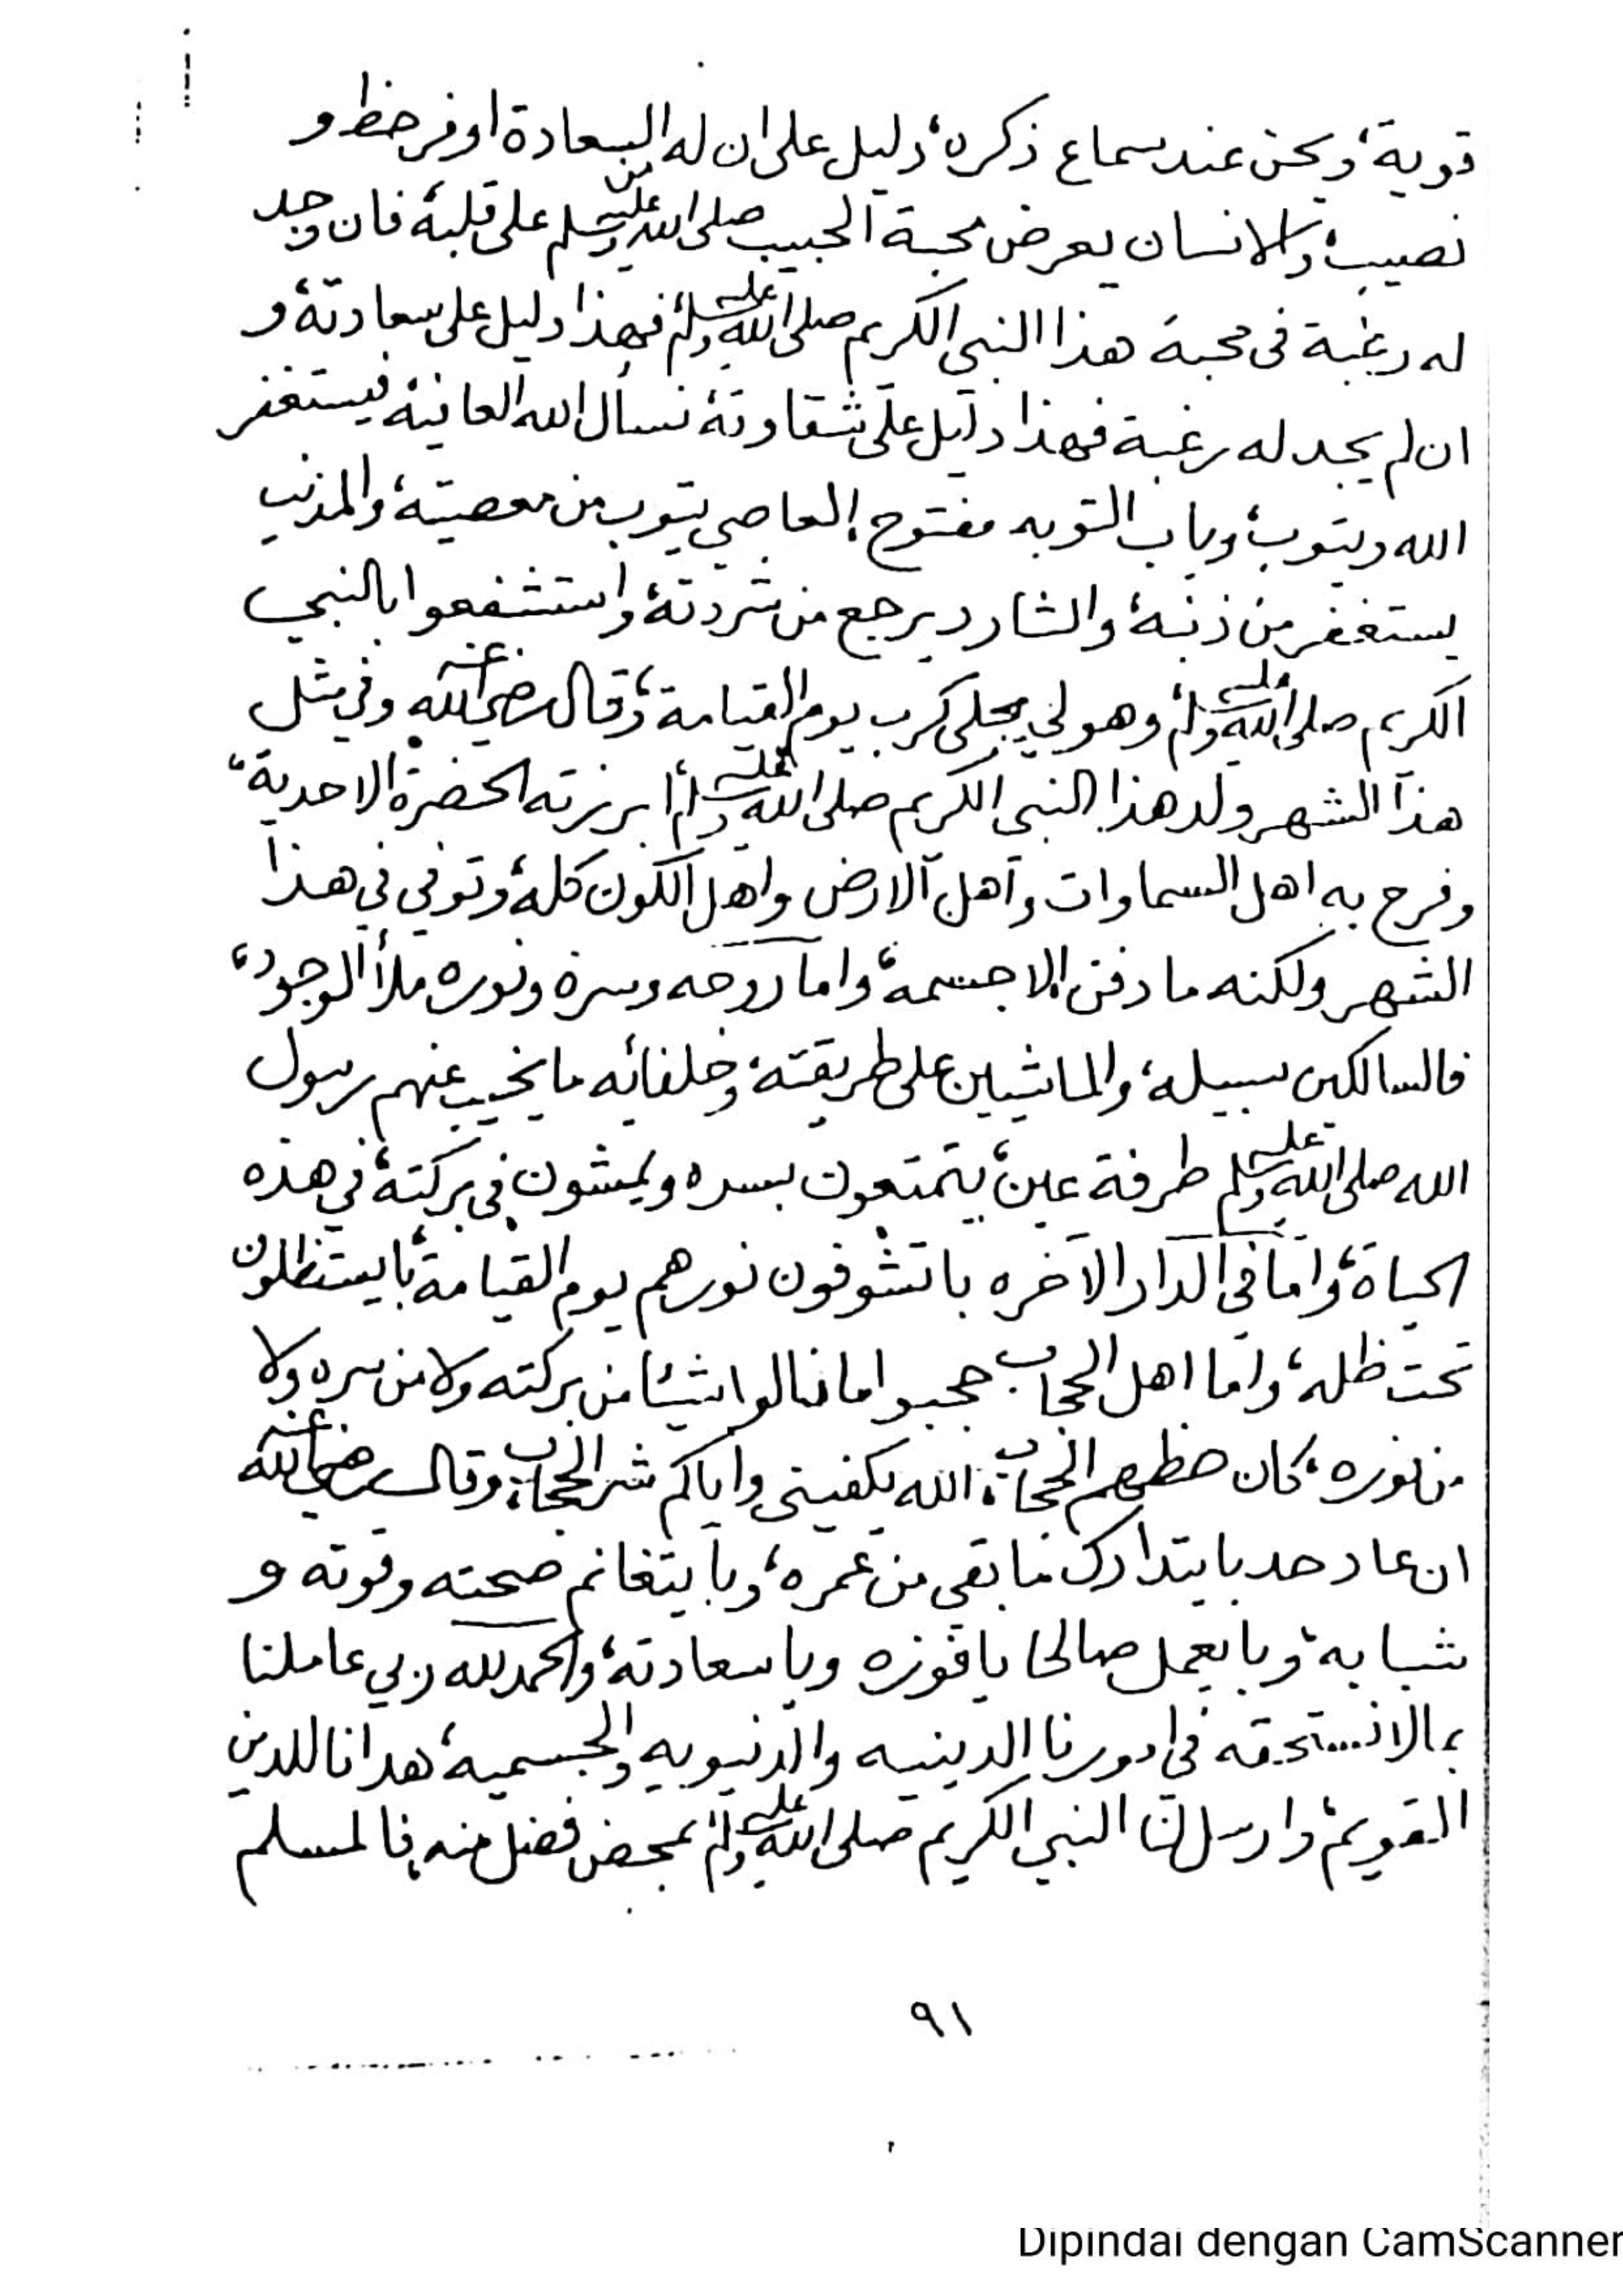 قوية، ويحن عند سماع ذكره، دليل على ان له من السعادة اوفر حظ و
نصيب، والانسان يعرض محبة الحبيب صلى الله عليه وسلم على قلبه، فان وجد
له رغبة فى محبة هذا النبي الكريم صلى الله عليه وسلم، فهذا دليل على سعادته، و
ان لم يجد له رغبة فهذا دليل على شقاوته، نسأل الله العافية، فيستغفر
الله ويتوب، وباب التوبه مفتوح، العاصي يتوب من معصيته، والمذنب
يستغفر من ذنبه، والشارد يرجع من شردته، واستشفعوا بالنبي
الكريم صلى الله عليه وسلم، وهو لي يجلي كرب يوم القيامة، وقال رضي الله عنه وفي مثل
هذا الشهر ولد هذا النبي الكريم صلى الله عليه وسلم، ابرزته الحضرة الاحدية،
وفرح به اهل السماوات واهل الارض واهل الكون كله، وتوفي في هذا
الشهر ولكنه ما دفن الا جسمه، واما روحه وسره ونوره ملأ الوجود،
فالسالكين سبيله، والماشيين على طريقته، وخلفائه ما يخيب عنهم رسول
الله صلى الله عليه وسلم طرفة عين، يتمتعون بسره ويمشون فى بركته، في هذه
الحياة، واما فى الدار الآخره باتشوفون نورهم يوم القيامة، بايستظلون
تحت ظله، واما اهل الحجاب حجبوا ما نالوا شيئا من بركته ولا من سره ولا
من نوره، كان حظهم الحجاب، الله يكفيني واياكم شر الحجاب، وقال رضي الله عنه
ان عاد حد بايتدارك ما بقي من عمره، وبايتغانم صحته وقوته و
شبابه، وبايعمل صالحا يافوزه وياسعادته، والحمد لله ربي عاملنا
بمالانستحقه في امورنا الدينيه والدنيويه والجسميه، هدانا للدين
القويم، وارسل لنا النبي الكريم صلى الله عليه وسلم، بمحض فضل منه، فالمسلم
٩١
Dipindai dengan CamScanner